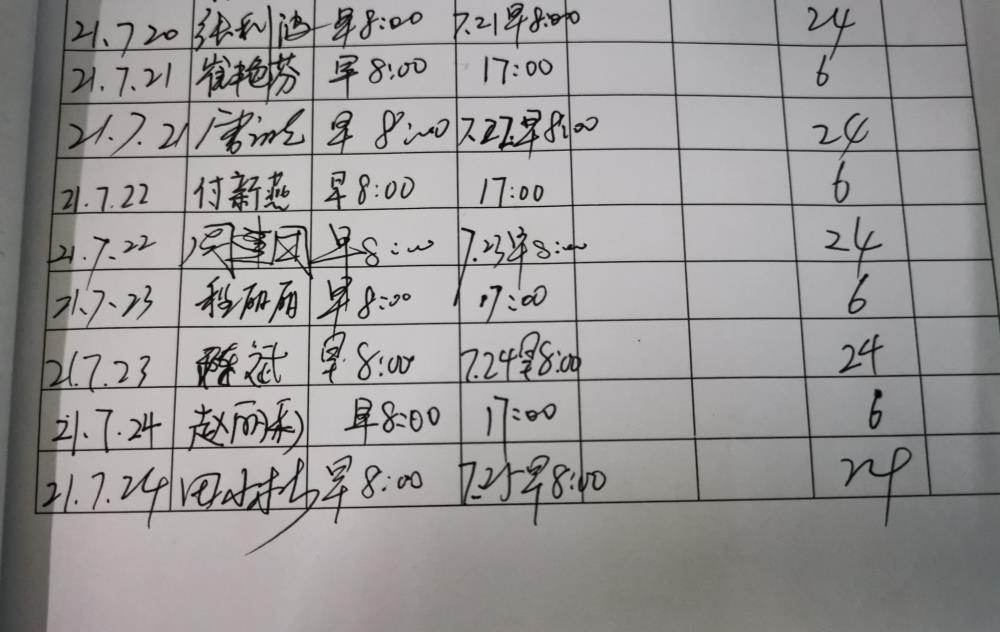 21.7.20 张利 早8:00 7.21早8:00 24
21.7.21 崔艳芬 早8:00 17:00 6
21.7.21 早8:00 7.22早8:00 24
21.7.22 付新燕 早8:00 17:00 6
21.7.22 早8:00 7.23早8:00 24
21.7.23 程丽丽 早8:00 17:00 6
21.7.23 陈斌 早8:00 7.24早8:00 24
21.7.24 赵丽彩 早8:00 17:00 6
21.7.24 田 早8:00 7.25早8:00 24